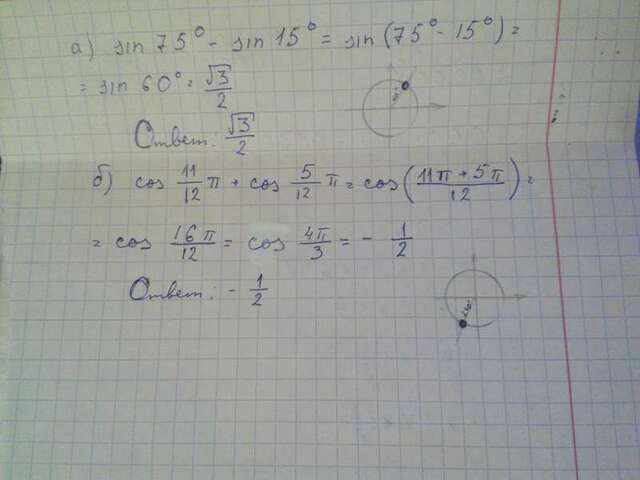 а) sin 75° - sin 15° = sin (75° - 15°) =
= sin 60° = √3/2
Ответ: √3/2
б) cos 11/12 π + cos 5/12 π = cos ((11π + 5π)/12) =
= cos 16π/12 = cos 4π/3 = - 1/2
Ответ: - 1/2